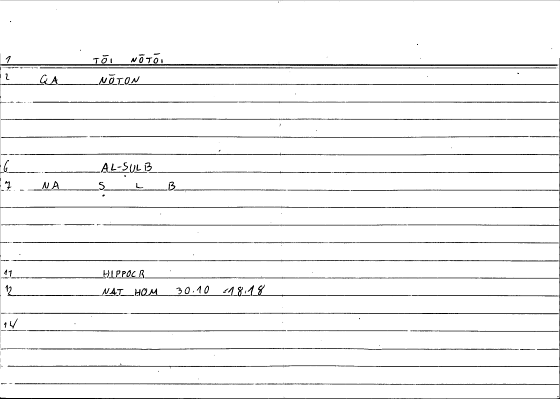 1 TŌI NŌTŌI
2 GA NŌTON
6 AL-ṢULB
7 NA Ṣ L B
11 HIPPOCR
12 NAT HOM 30.10 -18.18
14